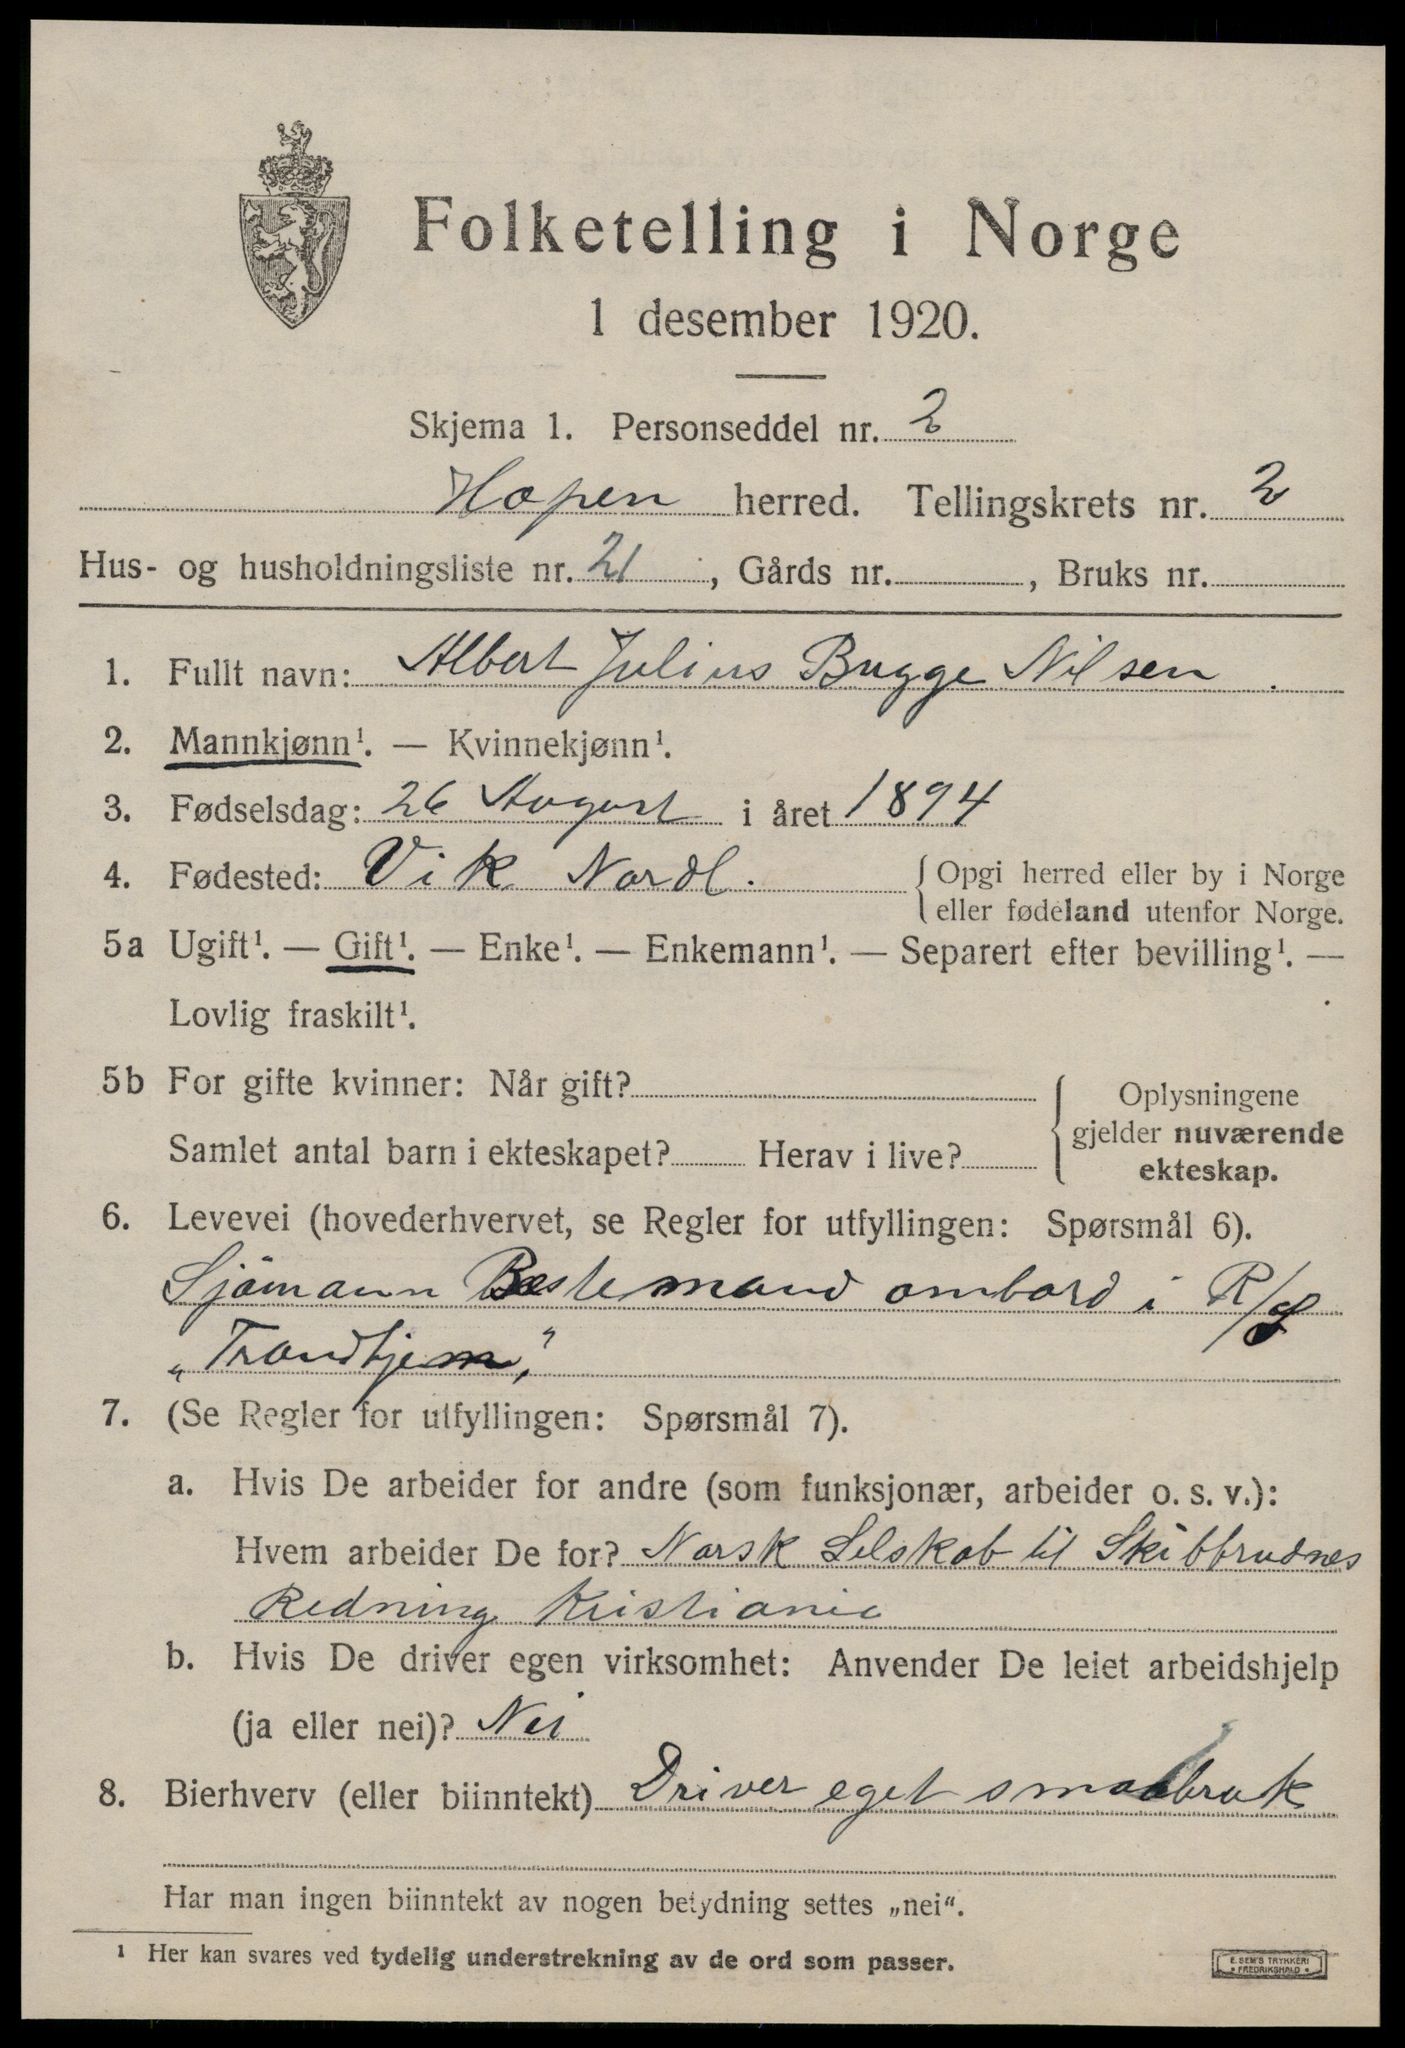 Folketelling i Norge
1 desember 1920.
Skjema 1. Personseddel nr. 2
Hopen herred. Tellingskrets nr. 2
Hus- og husholdningsliste nr. 21, Gårds nr. , Bruks nr.
1. Fullt navn: Albert Julius Bugge Nilsen
2. Mannkjønn¹. — Kvinnekjønn¹.
3. Fødselsdag: 26 August i året 1894
4. Fødested: Vik Nordl. Opgi herred eller by i Norge
eller fødeland utenfor Norge.
5a Ugift¹. — Gift¹. — Enke¹. — Enkemann¹. — Separert efter bevilling¹. —
Lovlig fraskilt¹.
5b For gifte kvinner: Når gift? Oplysningene
gjelder nuværende
Samlet antal barn i ekteskapet? Herav i live? ekteskap.
6. Levevei (hovederhvervet, se Regler for utfyllingen: Spørsmål 6).
Sjömann Bestemand ombord i R/S
„Trondhjem"
7. (Se Regler for utfyllingen: Spørsmål 7).
a. Hvis De arbeider for andre (som funksjonær, arbeider o. s. v.):
Hvem arbeider De for? Norsk Selskab til Skibbrudnes
Redning Kristiania
b. Hvis De driver egen virksomhet: Anvender De leiet arbeidshjelp
(ja eller nei)? Nei
8. Bierhverv (eller biinntekt) Driver eget smabruk
Har man ingen biinntekt av nogen betydning settes „nei“.
¹ Her kan svares ved tydelig understrekning av de ord som passer.
E. SEM'S TRYKKERI
FREDRIKSHALD